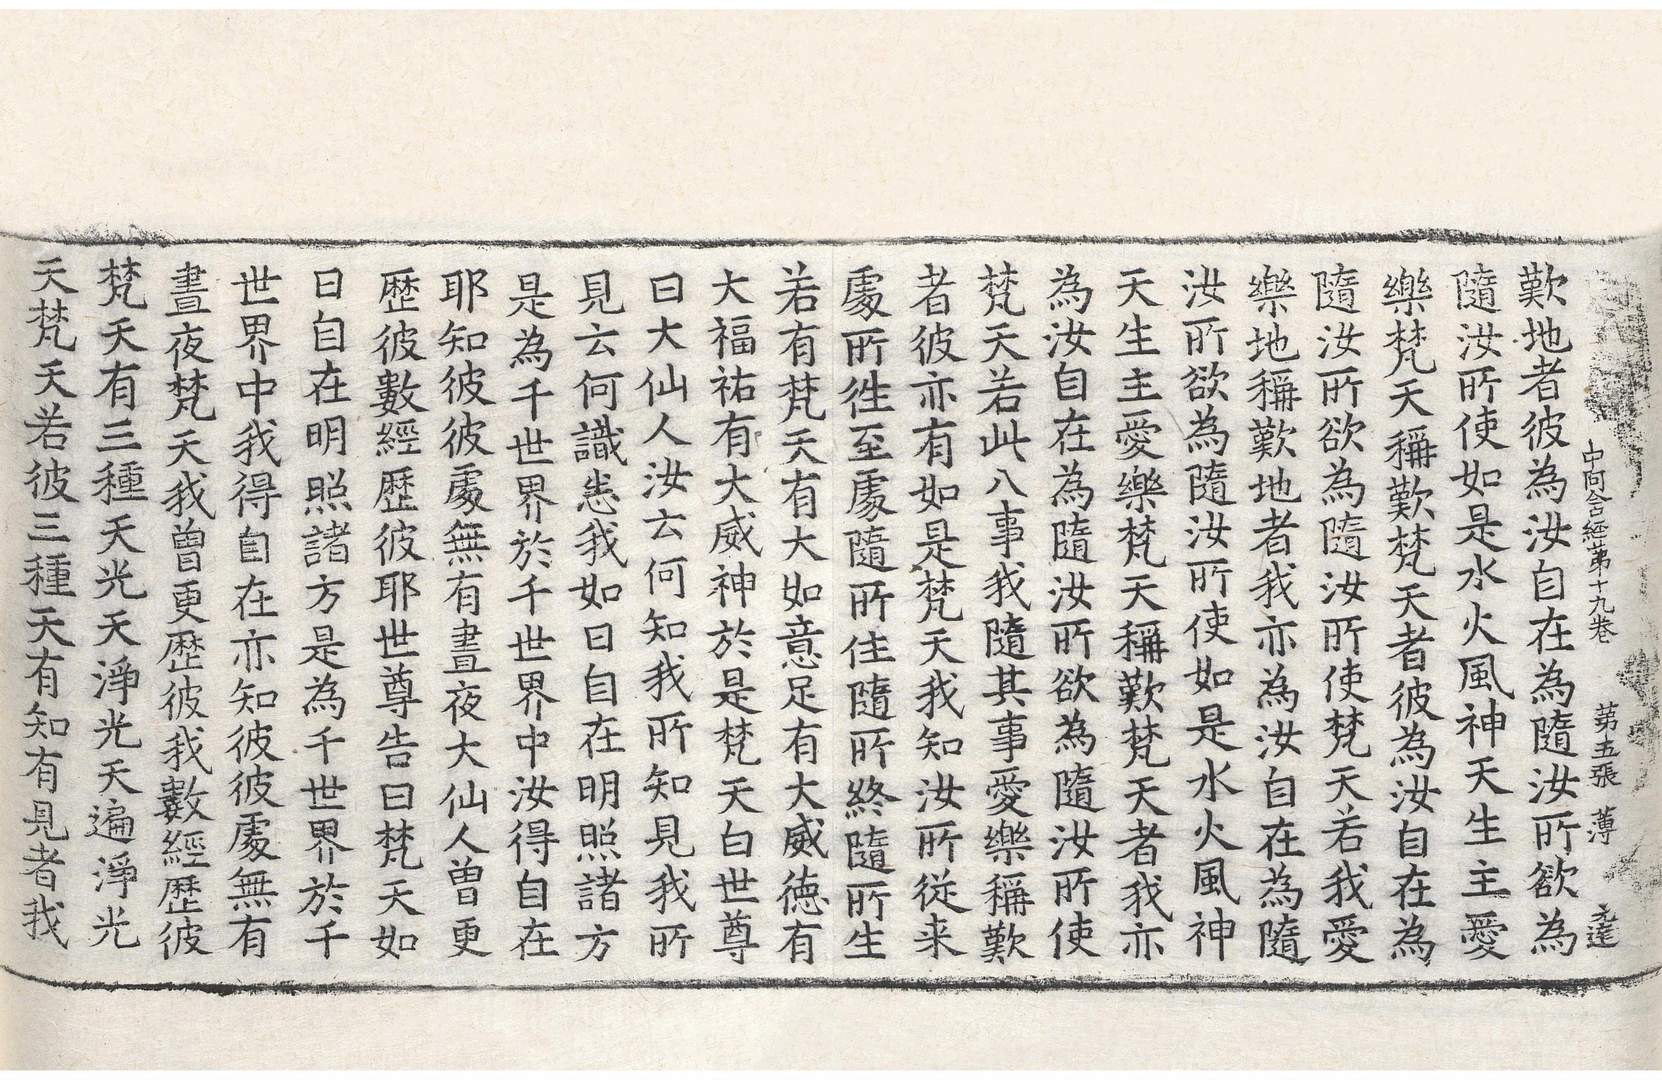 中阿含經第十九卷 第五張 薄 元達
歎地者彼為汝自在為隨汝所欲為
隨汝所使如是水火風神天生主愛
樂梵天稱歎梵天者彼為汝自在為
隨汝所欲為隨汝所使梵天若我愛
樂地稱歎地者我亦為汝自在為隨
汝所欲為隨汝所使如是水火風神
天生主愛樂梵天稱歎梵天者我亦
為汝自在為隨汝所欲為隨汝所使
梵天若此八事我隨其事愛樂稱歎
者彼亦有如是梵天我知汝所從来
處所徃至處隨所住隨所終隨所生
若有梵天有大如意足有大威德有
大福祐有大威神於是梵天白世尊
曰大仙人汝云何知我所知見我所
見云何識悉我如日自在明照諸方
是為千世界於千世界中汝得自在
耶知彼彼處無有晝夜大仙人曾更
歷彼數經歷彼耶世尊告曰梵天如
日自在明照諸方是為千世界於千
世界中我得自在亦知彼彼處無有
晝夜梵天我曾更歷彼我數經歷彼
梵天有三種天光天淨光天遍淨光
天梵天若彼三種天有知有見者我